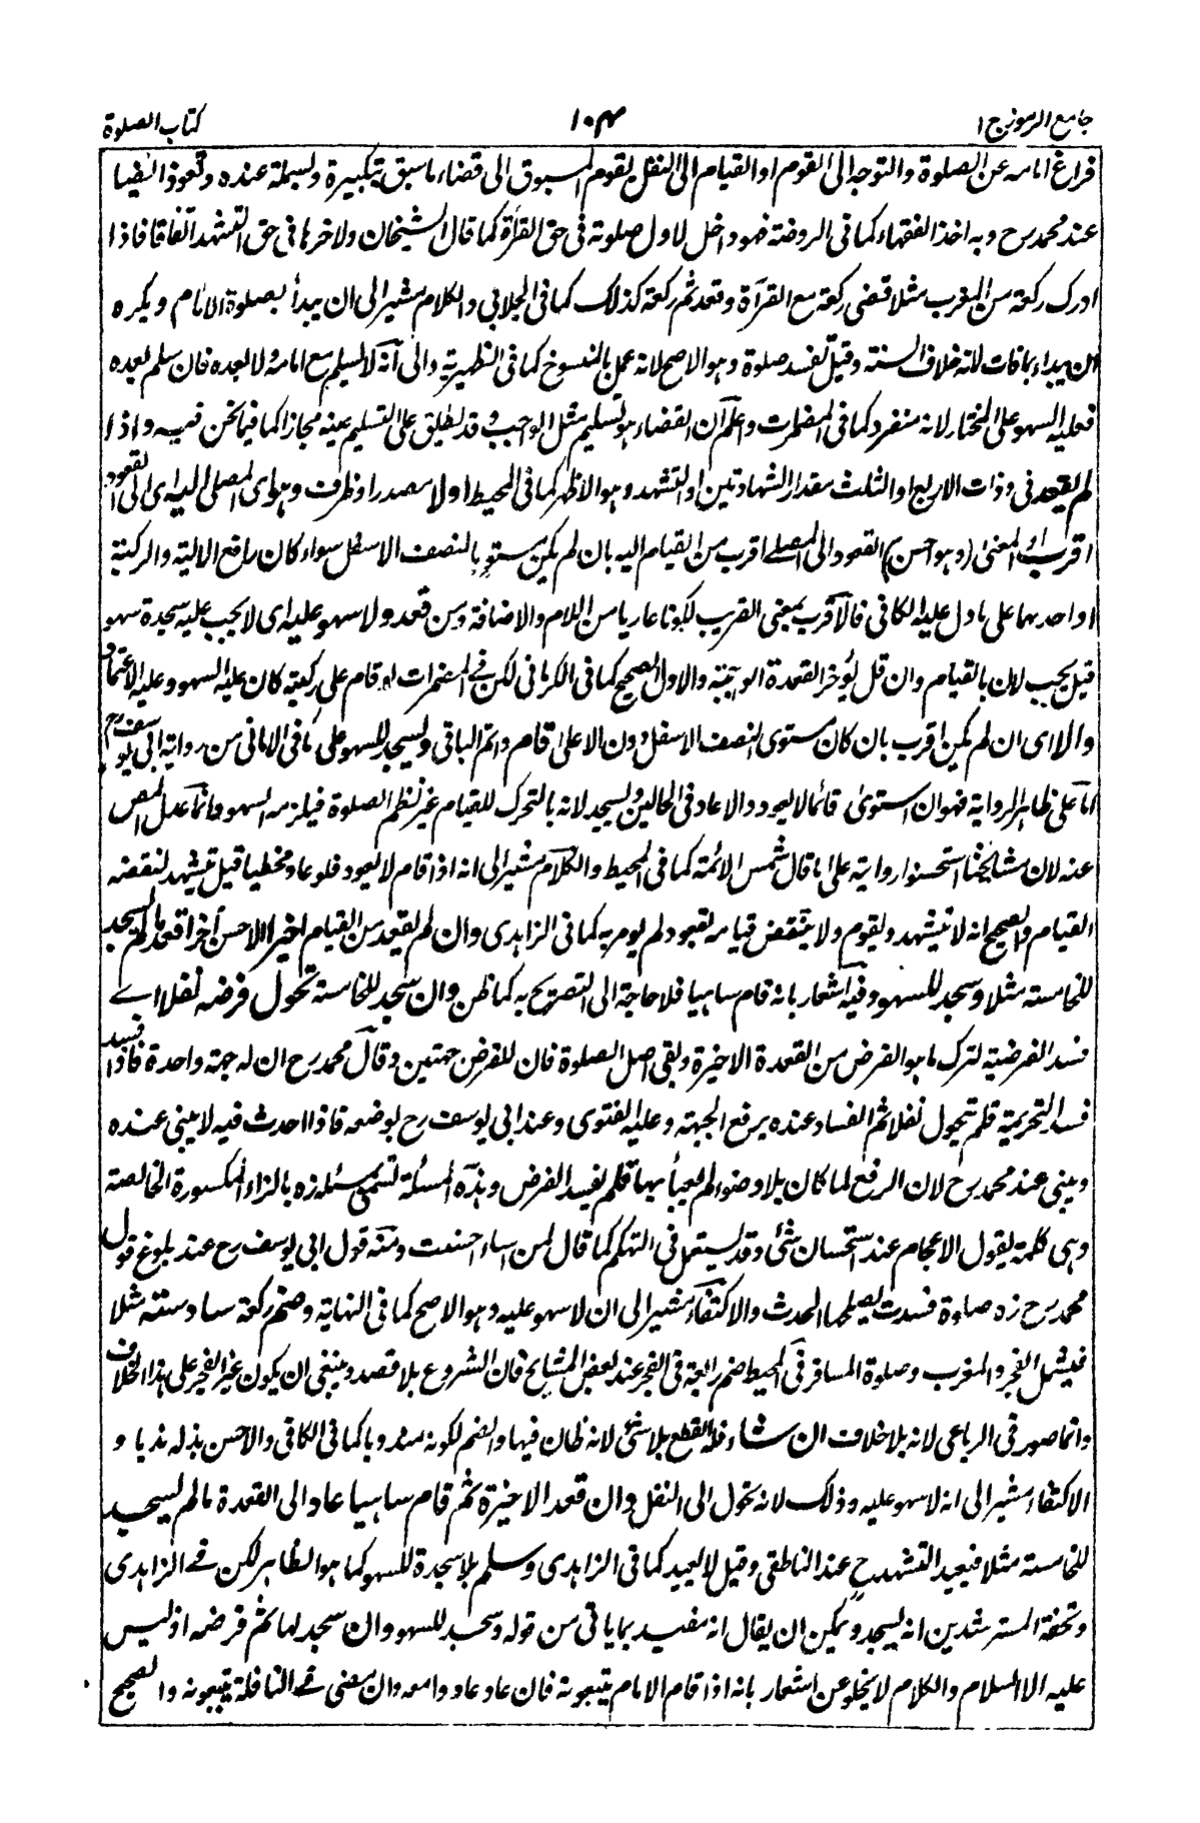 جامع الرموز ج ١
١٠٤
كتاب الصلوة
فراغ امامه عن الصلوة والتوجه الى القوم او القيام الى النفل يقوم المسبوق الى قضاء ما سبق بتكبيرة وبسملة عنده وتعوذ ايضا
عند محمد رح وبه اخذ الفقهاء كما فى الروضة فهو داخل لاول صلوته فى حق القرأة كما قال الشيخان ولاخرها فى حق التشهد اتفاقا فاذا
ادرك ركعة من المغرب مثلا قضى ركعة مع القرآة وقعد ثم ركعة كذلك كما فى الجلابي والكلام مشير الى ان يبدأ بصلوة الامام ويكره
ان يبداء بما فات لانه خلاف السنة وقيل تفسد صلوة وهو الاصح لانه عمل بالمنسوخ كما فى الظهيرية والى انه لا يسلم مع امامه لا بعده فان سلم بعده
فعليه السهو على المختار لانه منفرد كما فى المضمرات واعلم ان القضاء هو تسليم مثل الواجب وقد يطلق على التسليم عينه مجازا كما فيما نحن فيه واذا
لم يقعد فى ذات الاربع او الثلث مقدار الشهادتين او التشهد وهو الاظهر كما فى المحيط اولا مصدر او ظرف وهو اى المصلى اليه اى الى القعود
اقرب اى المعنى (وهو احسن) القعود الى المصلى اقرب من القيام اليه بان لم يكن يستو بالنصف الاسفل سواء كان رافع الالية والركبة
او احدهما على ما دل عليه الكافى فالاقرب بمعنى القريب لكونا عاريا من اللام والاضافة ومن قعد ولا سهو عليه اى لا يجب عليه سجدة سهو
قيل يجب لان بالقيام وان قل يؤخر القعدة الواجبة والاول الصحيح كما فى الكرمانى لكن فى المضمرات لو قام على ركبتيه كان عليه السهو وعليه الاعتماد
والا اى ان لم يكن اقرب بان كان مستوى النصف الاسفل دون الاعلى قام واتم الباقى ويسجد للسهو على ما فى الامالى من رواية ابى يوسف رح
اما على ظاهر الرواية فهو ان استوى قائما لا يعود والا عاد فى الحالين ويسجد لانه بالتحرك للقيام غير نظم الصلوة فيلزمه السهو وانما عدل المص
عنه لان مشايخنا استحسنوا رواية على ما قال شمس الائمة كما فى المحيط والكلام مشير الى انه اذا قام لا يعود فلو عاد مخطيا قيل يتشهد لنقضه
القيام والصحيح انه لا يتشهد ويقوم ولا ينتقض قيامه بقعود لم يومر به كما فى الزاهدى وان لم يقعد من القيام اخيرا الاحسن آخرا قعد ما لم يسجد
للخامسة مثلا وسجد للسهو وفيه اشعار بانه قام ساهيا فلا حاجة الى التصريح به كما ظن وان سجد للخامسة تحول فرضه نفلا اى
فسد الفرضية لترك ما هو الفرض من القعدة الاخيرة وبقى اصل الصلوة فان للفرض جهتين وقال محمد رح ان له جهة واحدة فاذا فسد
فسد التحريمة فلم تتحول نفلا ثم الفساد عنده برفع الجبهة وعليه الفتوى وعند ابى يوسف رح بوضعه فاذا احدث فيه لا يبنى عنده
ويبنى عند محمد رح لان الرفع لما كان بلا وضوء لم يعبأ بها فلم يفسد الفرض وهذه المسئلة تسمى مسئلة زه بالزاء المكسورة الخالصة
وهى كلمة يقول الاعجام عند استحسان شئ وقد يستعمل فى التهكم كما قال لمن اساء احسنت ومنه قول ابى يوسف رح عند بلوغ قول
محمد رح زه صلوة فسدت يصلحها الحدث والاكتفاء مشير الى ان لا سهو عليه وهو الاصح كما فى النهاية وضم ركعة سادسة مثلا
فيشمل الفجر والمغرب وصلوة المسافر فى المحيط ضم رابعة فى الفجر عند بعض المشايخ فان الشروع بلا قصد وينبغى ان يكون غير الفجر على هذا الخلاف
وانما صور فى الرباعى لانه بلا خلاف ان شاء فله القطع بلا شئ لانه ظان فيها والضم لكونه مندوبا كما فى الكافى والاحسن بذله ندبا و
الاكتفاء مشير الى انه لا سهو عليه وذلك لانه تحول الى النفل وان قعد الاخيرة ثم قام ساهيا عاد الى القعدة ما لم يسجد
للخامسة مثلا فيعيد التشهد ح عند الناطقى وقيل لا يعيد كما فى الزاهدى وسلم بلا سجدة للسهو كما هو الظاهر لكن فى الزاهدى
وتحفة المسترشدين انه يسجد ويمكن ان يقال انه مفيد بما ياتى من قوله وسجد للسهو وان سجد لها تم فرضه اذ ليس
عليه الا السلام والكلام لا يخلو عن اشعار بانه اذا قام الامام يتبعونه فان عاد عادوا معه وان مضى فى النافلة يتبعونه والصحيح